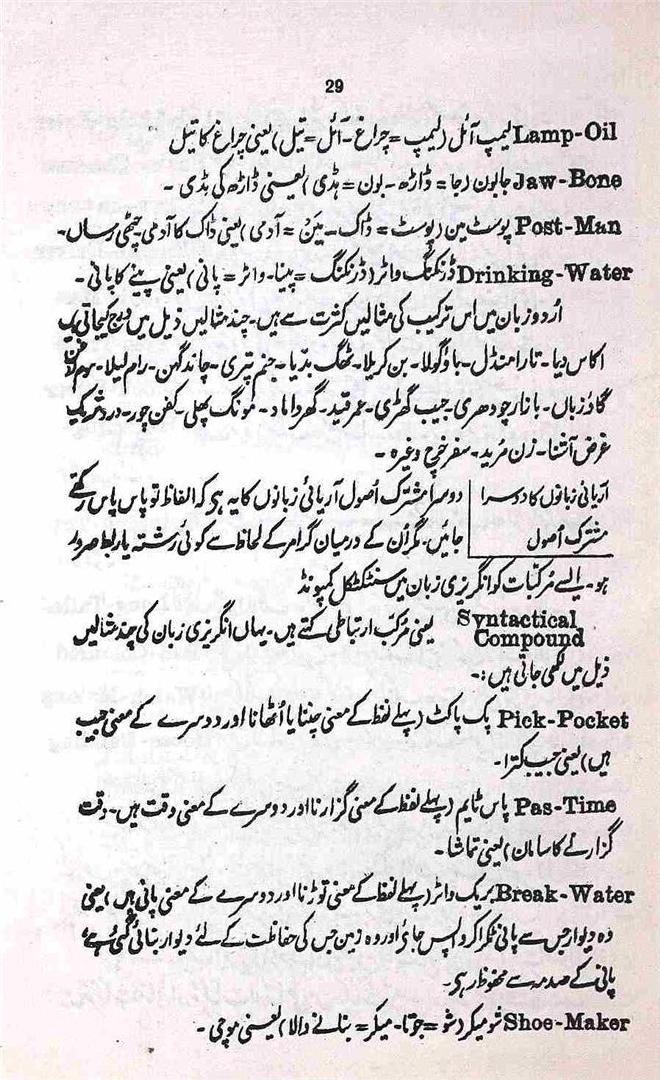 29
Lamp-Oil لیمپ آئل (لیمپ = چراغ - آئل = تیل) یعنی چراغ کا تیل
Jaw-Bone جابون (جا = ڈاڑھ - بون = ہڈی) یعنی ڈاڑھ کی ہڈی -
Post-Man پوسٹ مین (پوسٹ = ڈاک - مَین = آدمی) یعنی ڈاک کا آدمی چٹھی رساں -
Drinking-Water ڈرنکنگ واٹر (ڈرنکنگ = پینا - واٹر = پانی) یعنی پینے کا پانی -
اُردو زبان میں اس ترکیب کی مثالیں کثرت سے ہیں - چند مثالیں ذیل میں درج کیجاتی ہیں
اکاس دیا - تارا منڈل - باؤ گولا - بن کریلا - ٹھگ بدّیا - جنم پتری - چاند گہن - رام لیلا -
گاؤ زباں - بازار چودھری - جیب گھڑی - عمر قید - گھر داماد - مونگ پھلی - کفن چور - درد شریک
غرض آشنا - زن مُرید - سفر خرچ وغیرہ -
آریائی زبانوں کا دوسرا مشترک اُصول
دوسرا مشترک اُصول آریائی زبانوں کا یہ ہی کہ الفاظ تو پاس پاس رکھے
جائیں - مگر اُن کے درمیان گرامر کے لحاظ سے کوئی رشتہ یا ربط ضرور
ہو - ایسے مرکبات کو انگریزی زبان میں سنٹکٹکل کمپونڈ
Syntactical Compound یعنی مرکّب ارتباطی کہتے ہیں - یہاں انگریزی زبان کی چند مثالیں
ذیل میں لکھی جاتی ہیں :-
Pick-Pocket پک پاکٹ (پہلے لفظ کے معنی چننا یا اُٹھانا اور دوسرے کے معنی جیب
ہیں) یعنی جیب کترا -
Pas-Time پاس ٹایم (پہلے لفظ کے معنی گزارنا اور دوسرے کے معنی وقت ہیں - وقت
گزارنے کا سامان) یعنی تماشا -
Break-Water بریک واٹر (پہلے لفظ کے معنی توڑنا اور دوسرے کے معنی پانی ہیں) یعنی
وہ دیوار جس سے پانی ٹکرا کر واپس جائے اور وہ زمین جس کی حفاظت کے لئے دیوار بنائی گئی ہے
پانی کے صدمہ سے محفوظ رہی -
Shoe-Maker شو میکر (شو = جوتا - میکر = بنانے والا) یعنی موچی -